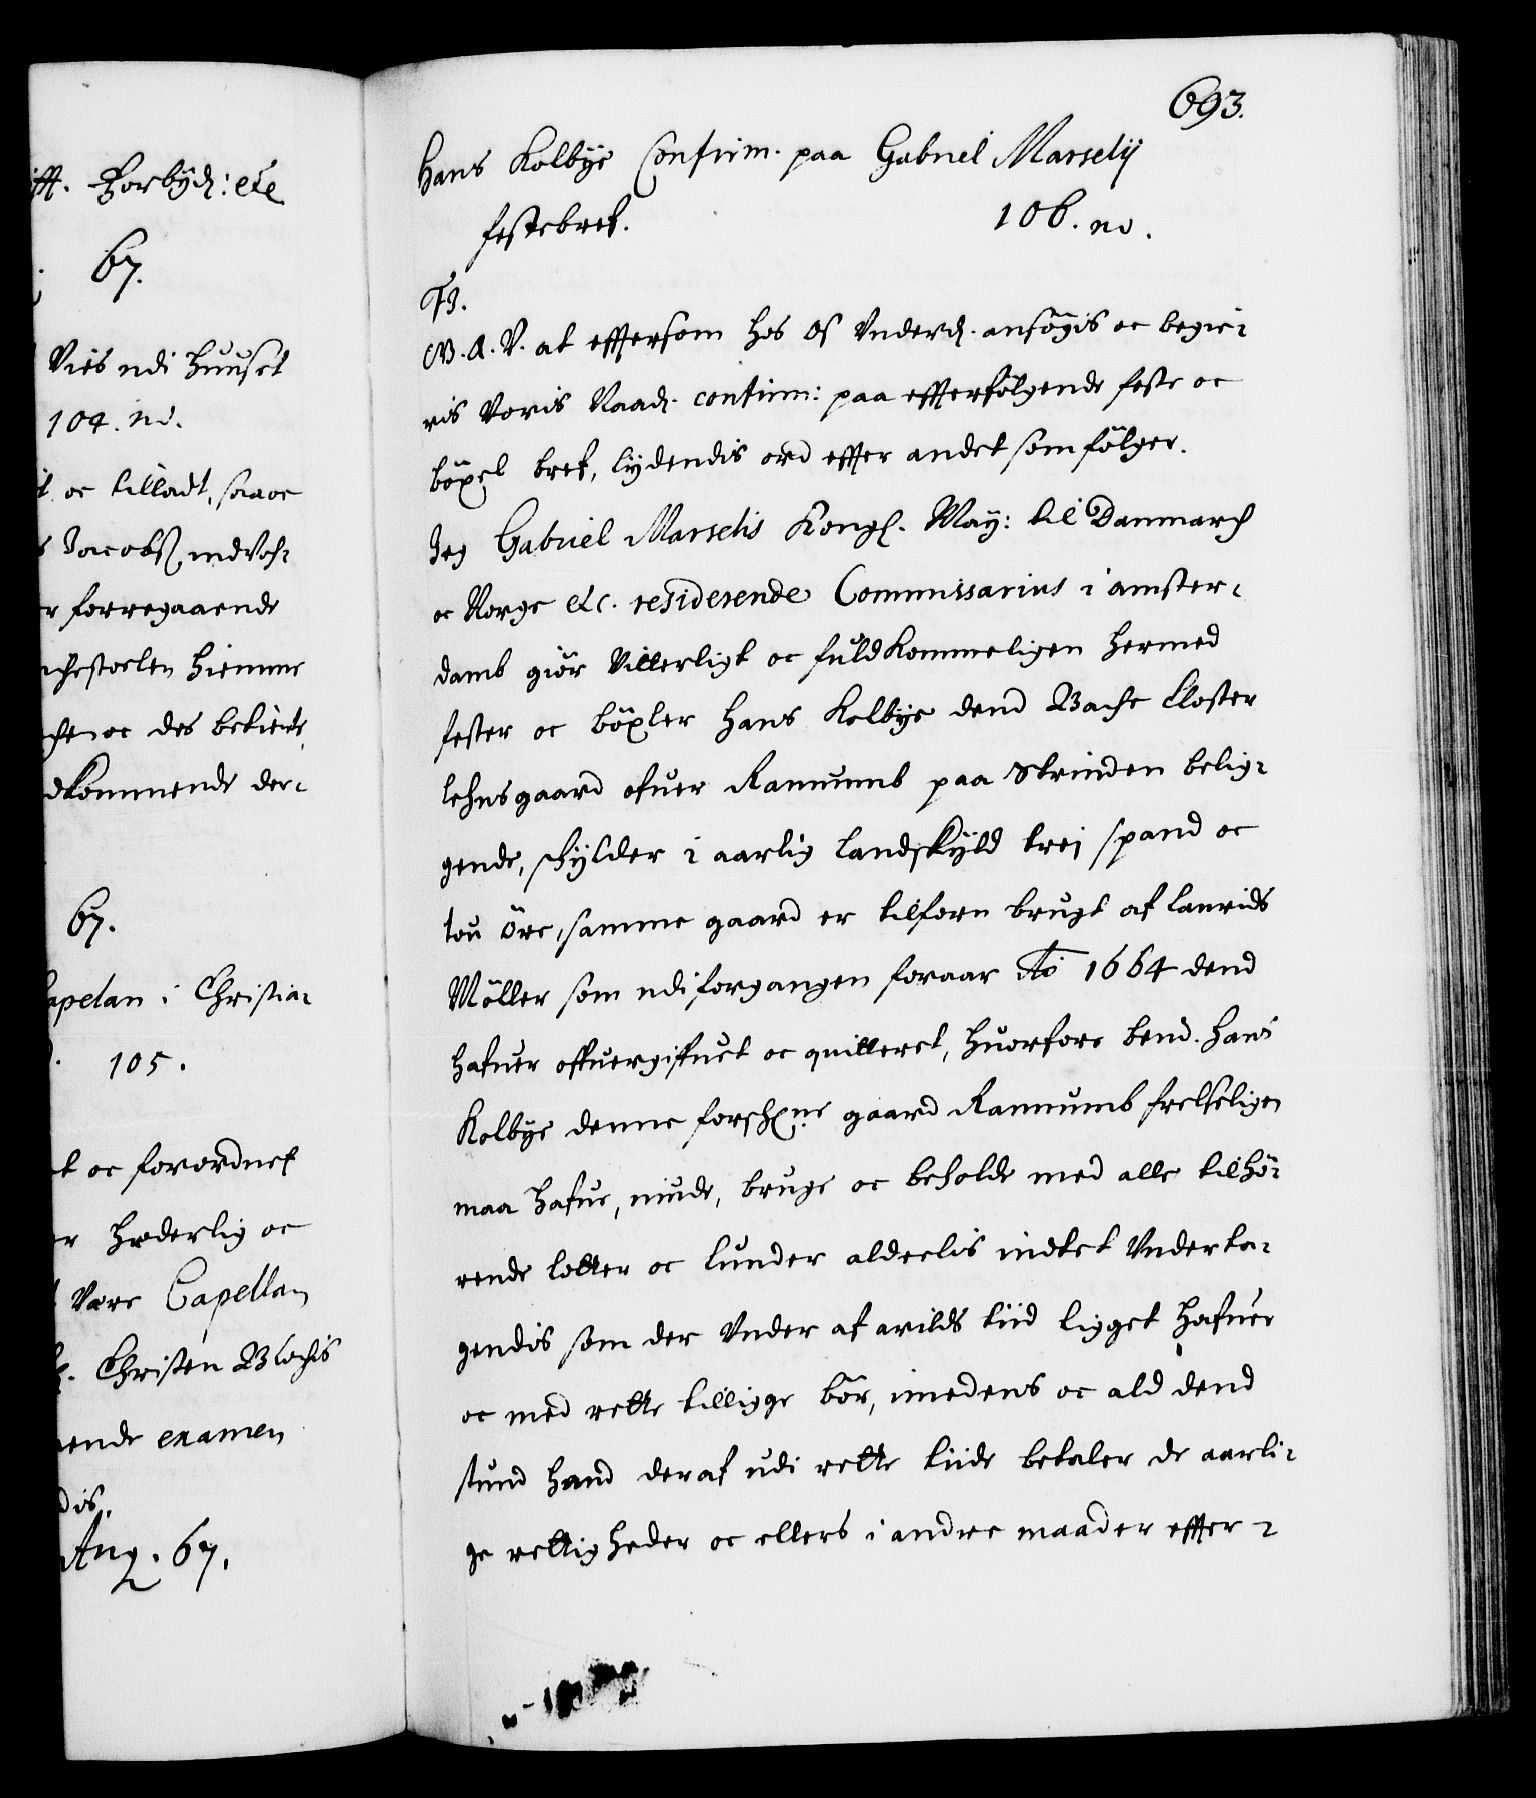 iff. Forbyd: etc
67.
Vies udi Huuset
104. no.
oc tilladt, saa oc
Jacobß, udvoh-
forregaaende
hiemme
oc des betiente
dkommende der-
67.
Capelan i Christia-
105.
oc forordnet
Hæderlig oc
Være Capellan
Christen Blochis
examen
dis.
Aug. 67.
693.
Hans Kolbye Confirm. paa Gabriel Marselij
festebref.
106. no.
F3.
W.A.V. at effterson hos Os Underd. ansögis oc begie-
ris Voris Naad. confirm: paa effterfölgende feste oc
böxel bref, lydendis ord effter andet som fölger.
Jeg Gabriel Marselis Kongl. May: til Danmarch
oc Norge etc. residerende Commissarius i amster-
damb giör Vitterligt oc fuldkommeligen hermed
fester oc böxler Hans Kolbye dend Bache Closter
lehnsgaard ofuer Ranumb paa Strinden belig-
gende, skylder i aarlig landskyld trej spand oc
tou öre, samme gaard er tilforn brugt af Laurids
Möller som udi forgangen foraar Ao 1664 dend
hafuer offuergifuet oc quitteret, huorfore bend. Hans
Kolbye denne forschne gaard Ranumb frelseligen
maa hafue, niude, bruge oc beholde med alle tilhö-
rende lotter oc lunder aldeelis indtet Underta-
gendis som der Under af arilds tiid ligget hafuer
oc med rette tilligge bör, imedens oc ald dend
stund hand deraf udi rette tiide betaler de aarli-
ge rettigheder oc ellers i andre maader effter-